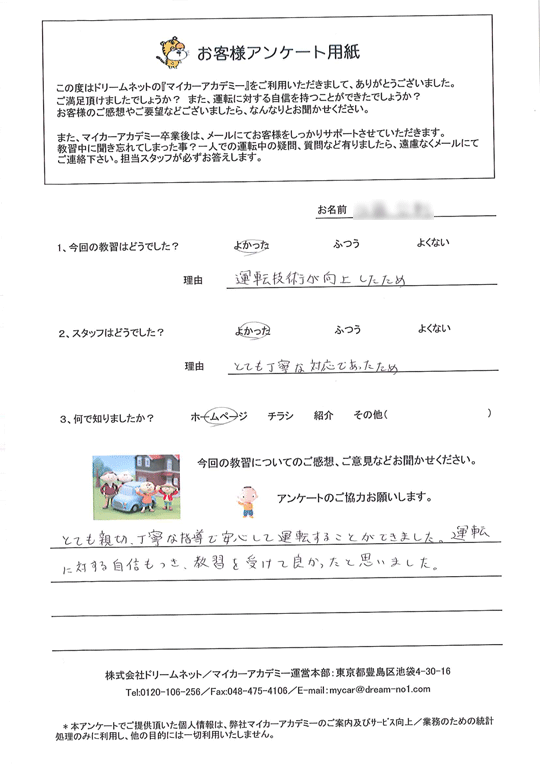 お客様アンケート用紙
この度はドリームネットの『マイカーアカデミー』をご利用いただきまして、ありがとうございました。
ご満足頂けましたでしょうか？ また、運転に対する自信を持つことができたでしょうか？
お客様のご感想やご要望などございましたら、なんなりとお聞かせください。
また、マイカーアカデミー卒業後は、メールにてお客様をしっかりサポートさせていただきます。
教習中に聞き忘れてしまった事？一人での運転中の疑問、質問など有りましたら、遠慮なくメールにて
ご連絡下さい。担当スタッフが必ずお答えします。
お名前
1、今回の教習はどうでした？ よかった ふつう よくない
理由 運転技術が向上したため
2、スタッフはどうでした？ よかった ふつう よくない
理由 とても丁寧な対応であったため
3、何で知りましたか？ ホームページ チラシ 紹介 その他( )
今回の教習についてのご感想、ご意見などお聞かせください。
アンケートのご協力お願いします。
とても親切、丁寧な指導で安心して運転することができました。運転
に対する自信もつき、教習を受けて良かったと思いました。
株式会社ドリームネット／マイカーアカデミー運営本部：東京都豊島区池袋4-30-16
Tel:0120-106-256／Fax:048-475-4106／E-mail:mycar@dream-no1.com
＊本アンケートでご提供頂いた個人情報は、弊社マイカーアカデミーのご案内及びサービス向上／業務のための統計
処理のみに利用し、他の目的には一切利用いたしません。